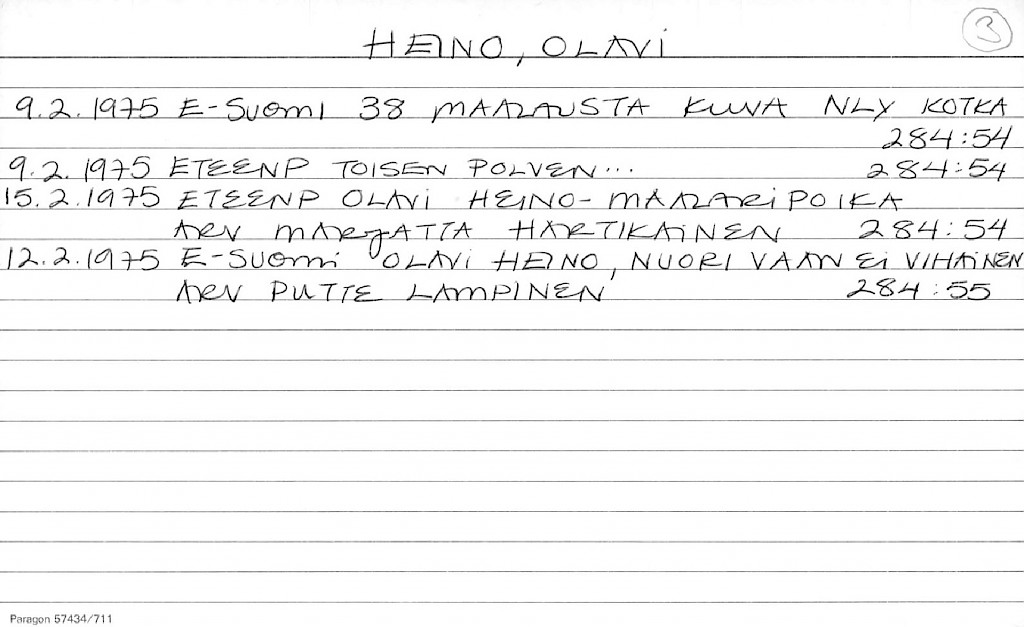 HEINO, OLAVI
3
9.2.1975 E-SUOMI 38 MAALAUSTA KUVA NLY KOTKA
284:54
9.2.1975 ETEENP TOISEN POLVEN... 284:54
15.2.1975 ETEENP OLAVI HEINO-MAALARIPOIKA
ARV MARJATTA HARTIKAINEN 284:54
12.2.1975 E-SUOMI OLAVI HEINO, NUORI VAAN EI VIHAINEN
ARV PUTTE LAMPINEN 284:55
Paragon 57434/711